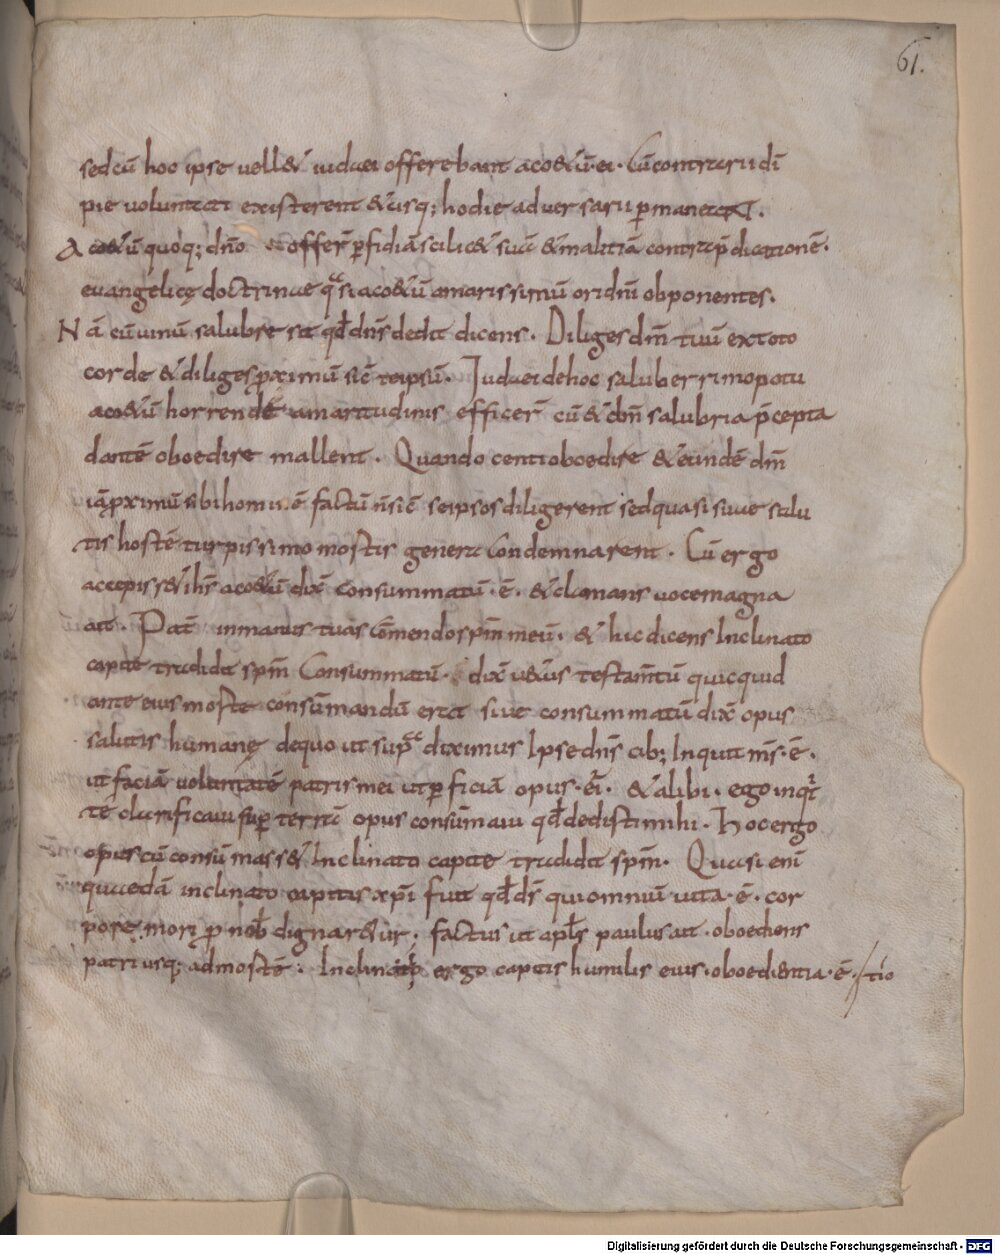 61.
sedcū hoc ipse uell& iudaei offerebant aco&ū·ei· Cūcontrarii di
pie uoluntati existerent &usq; hodie aduersarii ꝑmaneant.
Aco&ū quoq; dn̄o offerr̄ ꝑfidiā scilic& suā &malitiā contrap̄dicationē.
euangelicę doctrinae q̄si aco&ū amarissimū ori dn̄i obponentes.
Nā cū uinū salubre sit qd̄ dn̄s dedit dicens. Diliges dn̄m tuū extoto
corde &diliges ꝓximū sic̄ teipsū. Iudaei dehoc saluberrimopotu
aco&ū horrendę amaritudinis efficer̄ cū & dn̄i salubria p̄cepta
dantē oboedire mallent. Quando centi oboedire &eundē dn̄m
iā ꝓximū sibi hominē factū n̄ sic̄ seipsos diligerent sedquasi suae salu
tis hostē turpissimo mortis genere condemnarent. Cū ergo
accepiss& ih̄s aco&ū dix̄ consummatū·ē· &clamans uocemagna
ait. Pat̄ inmanus tuas cōmendo sp̄m meū. & huc dicens Inclinato
capite tradidit sp̄m Consummatū· dix̄ u&us testam̄tū quicquid
ante eius morte consūmandū erat siue consummatū dix̄ opus
salutis humanę dequo ut supra diximus Ipse dn̄s cib; Inquit m̄s·ē·
ut faciā uoluntatē patris mei ut ꝑficiā opus·ei· &alibi· ego inq̇t
tē clarificaui sup̄ terrā opus consūmaui qd̄ dedisti mihi. Hoc ergo
opus cū consūmass& Inclinato capite tradidit sp̄m. Quasi enī
quaedā inclinatio capitis xp̄i fuit qd̄ ds̄ qui omniū uita·ē· cor
pore mori ꝓ nob̄ dignar&ur; factus ut apl̄s paulus ait· oboediens
patri usq; ad mortē. Inclinatio ergo capitis humilis eius·oboedientia·ē· tio
Digitalisierung gefördert durch die Deutsche Forschungsgemeinschaft - DFG